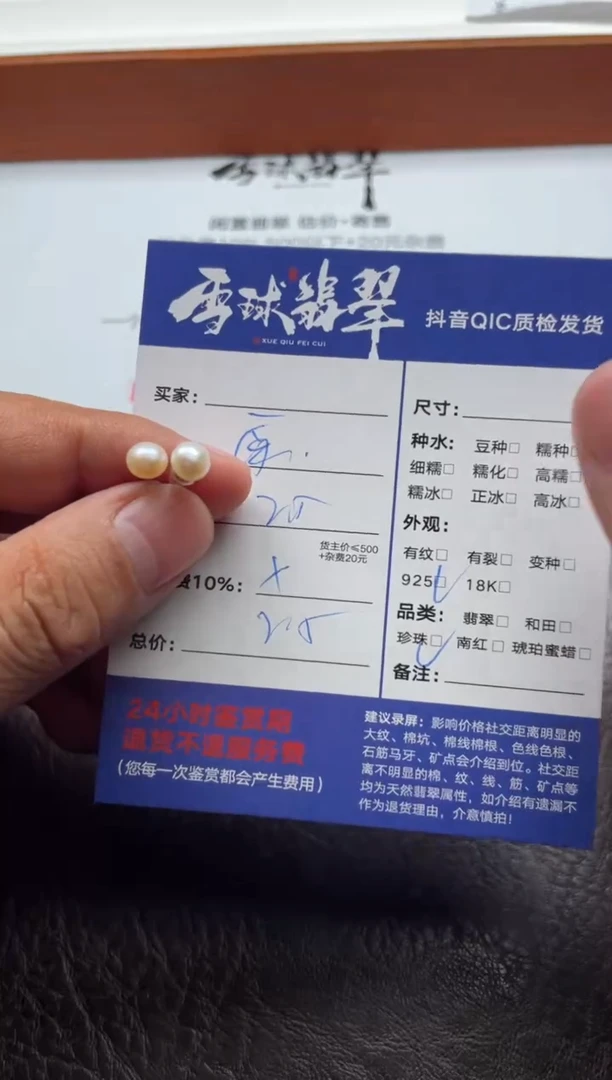 雪球翡翠
闲置翡翠 估价·寄售
雪球翡翠
XUE QIU FEI CUI
抖音QIC质检发货
买家：
货主价≤500
+杂费20元
费10%：
总价：
尺寸：
种水： 豆种□ 糯种□
细糯□ 糯化□ 高糯□
糯冰□ 正冰□ 高冰□
外观：
有纹□ 有裂□ 变种□
925□ 18K□
品类： 翡翠□ 和田□
珍珠□ 南红□ 琥珀蜜蜡□
备注：
24小时鉴赏期
退货不退服务费
(您每一次鉴赏都会产生费用)
建议录屏：影响价格社交距离明显的
大纹、棉坑、棉线棉根、色线色根、
石筋马牙、矿点会介绍到位。社交距
离不明显的棉、纹、线、筋、矿点等
均为天然翡翠属性，如介绍有遗漏不
作为退货理由，介意慎拍！